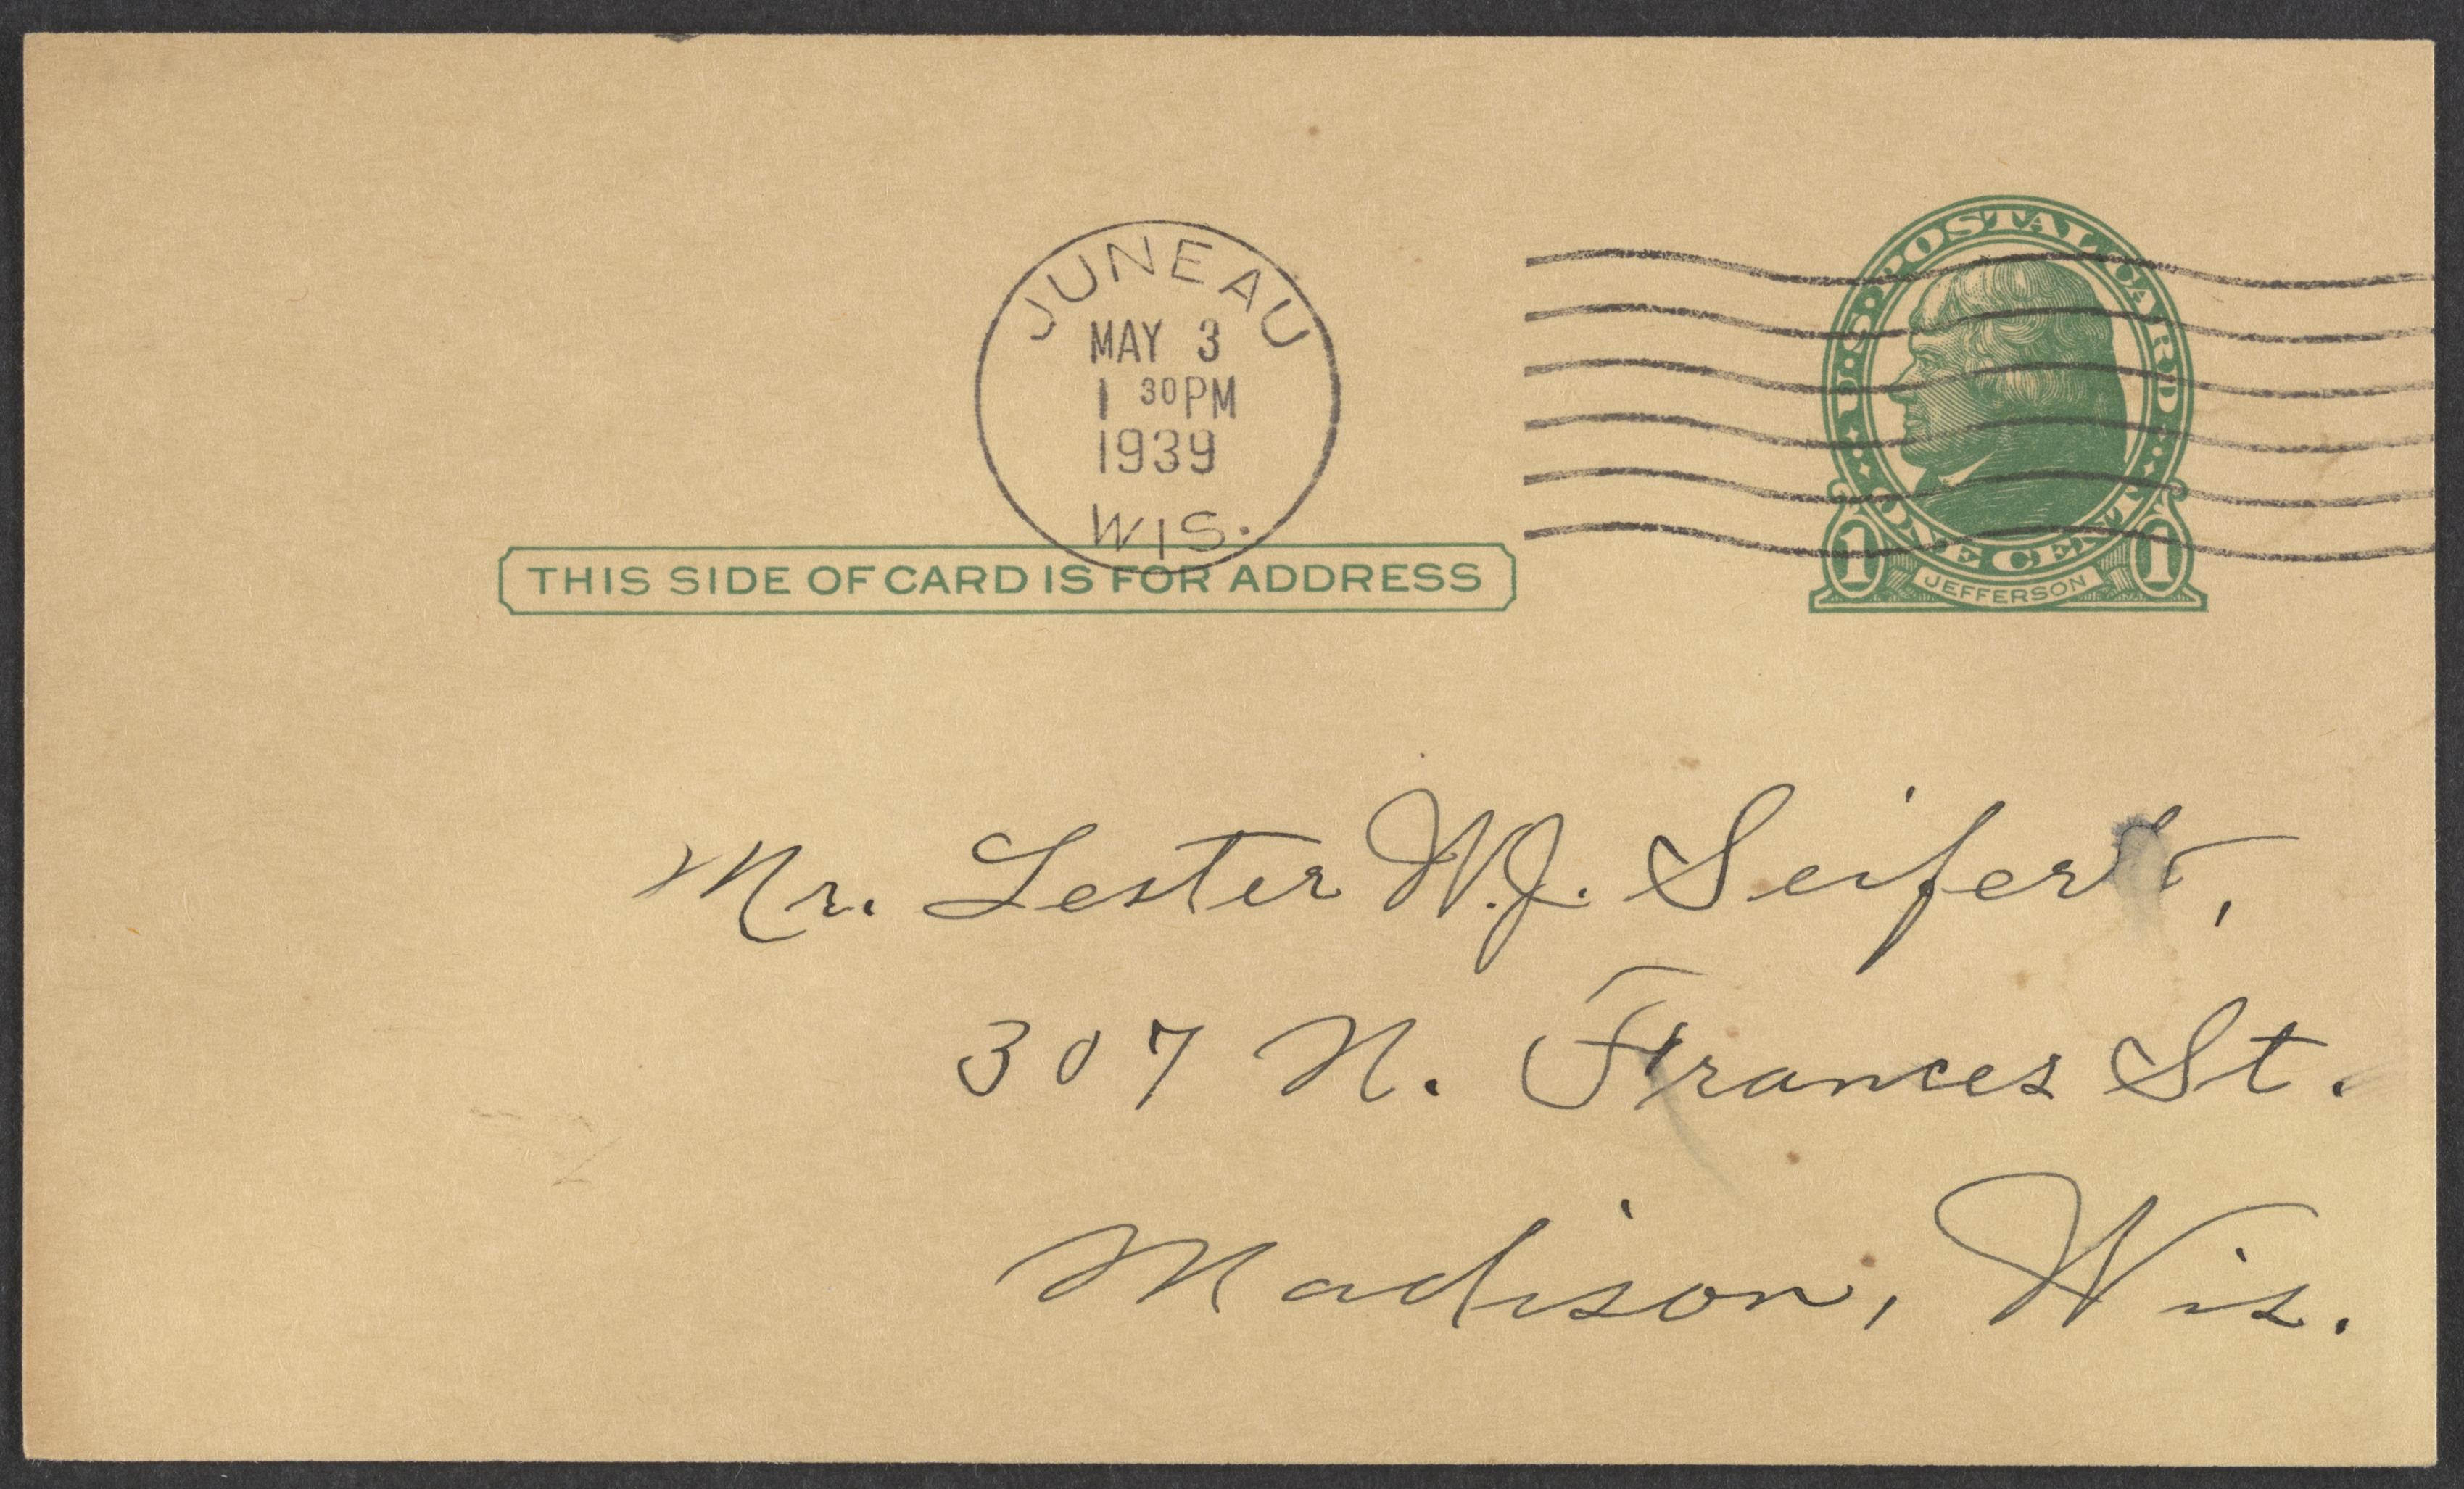 JUNEAU
MAY 3
1 30PM
1939
WIS.
U.S. POSTAL CARD
ONE CENT
1 1
JEFFERSON
THIS SIDE OF CARD IS FOR ADDRESS
Mr. Lester W.J. Seifert,
307 N. Frances St.
Madison, Wis.